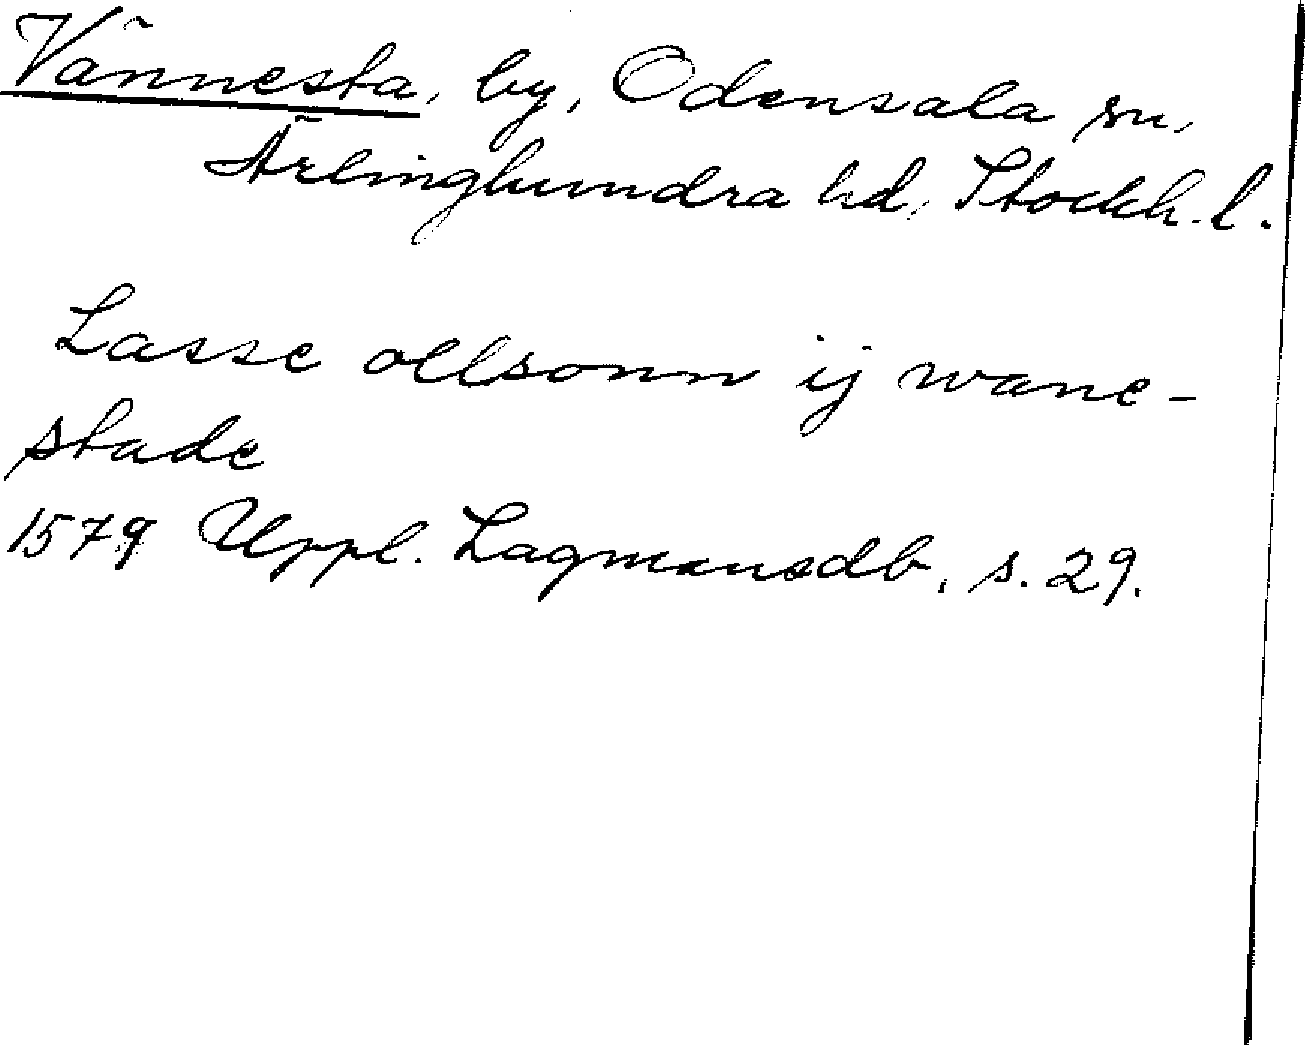 Vännesta, by, Odensala sn,
Ärlinghundra hd, Stockh. l.
Lasse ollsonn ij wane-
stade
1579 Uppl. Lagmansdb, s. 29.